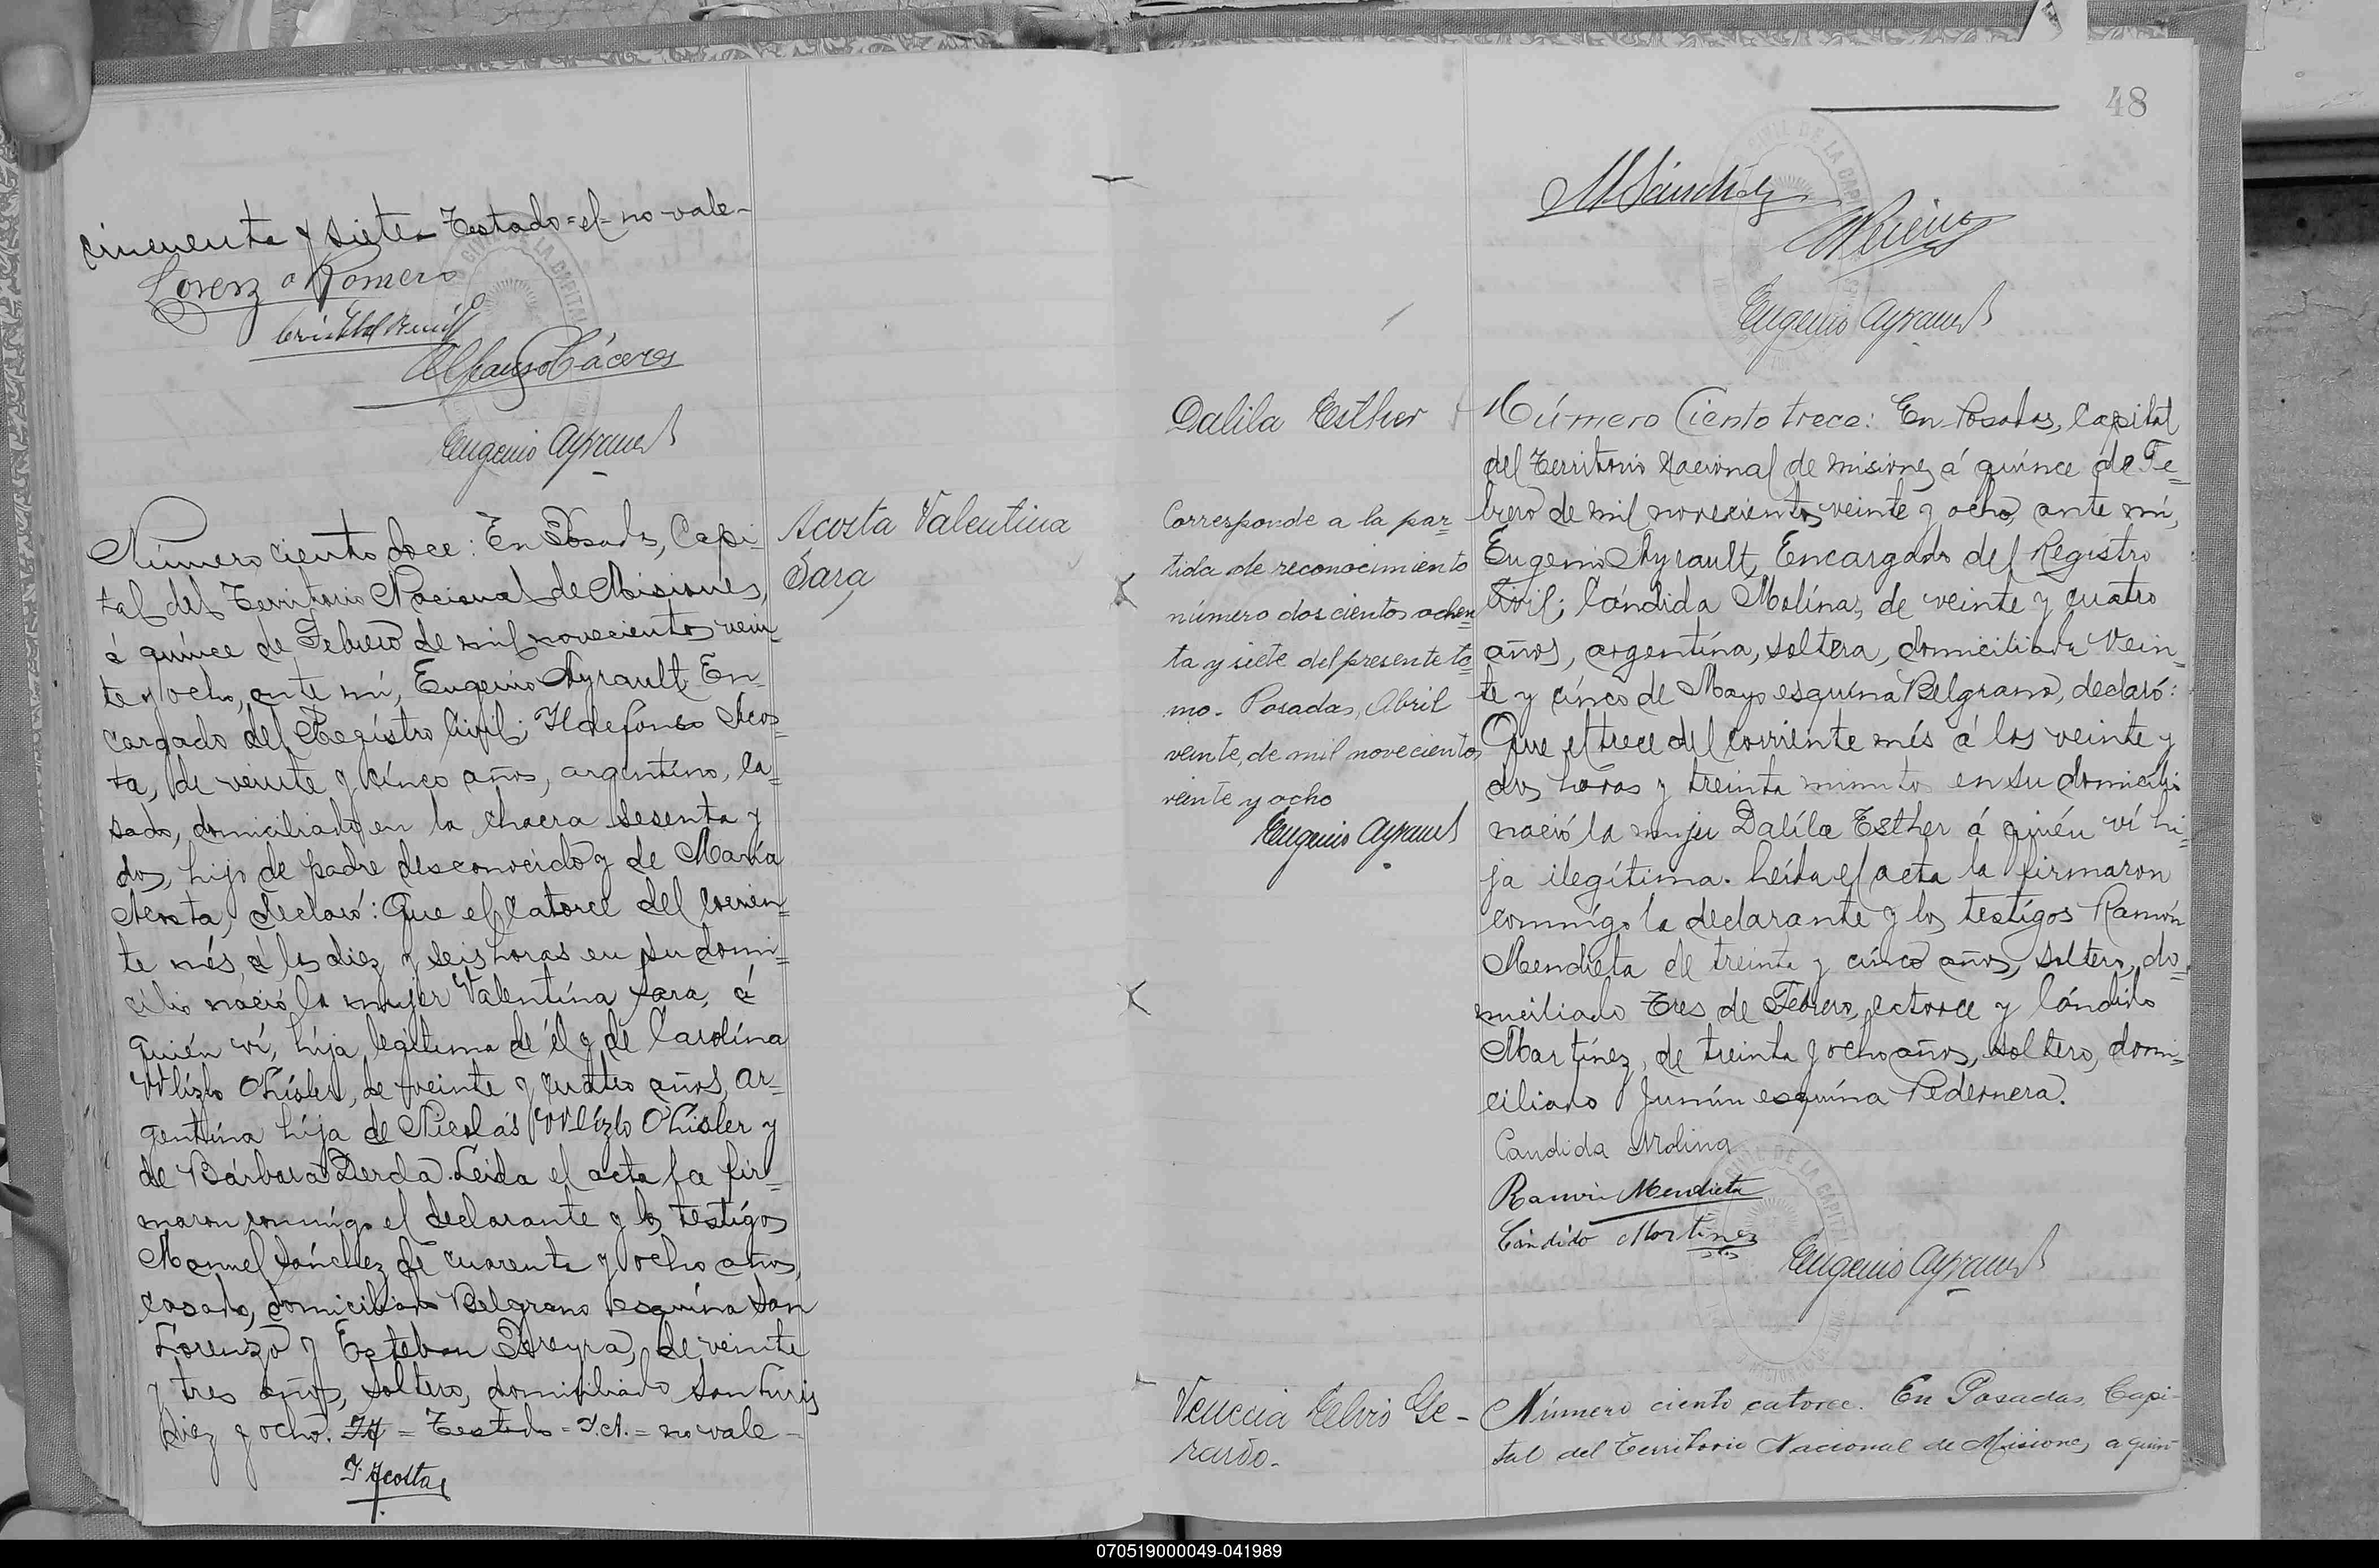 cincuenta y siete. Testado=el=no vale-
Lorenzo Romero
Alfonso Cáceres
Eugenio Ayrault
Número ciento doce: En Posadas, Capi-
tal del Territorio Nacional de Misiones,
á quince de Febrero de mil novecientos vein-
te y ocho, ante mí, Eugenio Ayrault, En-
cargado del Registro Civil; Ildefonso Acos-
ta, de veinte y cinco años, argentino, ca-
sado, domiciliado en la chacra sesenta y
dos, hijo de padre desconocido y de María
Acosta, declaró: Que el catorce del corrien-
te més, á las diez y seis horas en su domi-
cilio nació la mujer Valentína Sara, á
quién ví, hija legítima de él y de Carolína
de veinte y cuatro años, ar-
gentína hija de Nicolás y
de Bárbara Derda. Leida el acta la fir-
maron conmígo el declarante y los testígos
Manuel Sánchez de cuarenta y ocho años,
casado, domiciliado Belgrano esquína San
Lorenzo y Esteban Pereyra, de veinte
y tres años, soltero, domiciliado San Luis
diez y ocho. = Testado = I.A. = no vale -
I. Acosta
Acosta Valentina
Sara
48
M Sánchez
Eugenio Ayrault
Dalila Esther
Corresponde a la par-
tida de reconocimiento
número doscientos ochen-
ta y siete del presente to-
mo. Posadas, Abril
veinte, de mil novecientos
veinte y ocho
Eugenio Ayrault
Número Ciento trece: En Posadas, Capital
del Territorio Nacional de Misiones á quínce de Fe-
brero de mil novecientos veinte y ocho, ante mí,
Eugenio Ayrault, Encargado del Registro
Civil; Cándida Molína, de veinte y cuatro
años, argentína, soltera, domiciliada Vein-
te y cínco de Mayo esquína Belgrano, declaró:
Que el trece del corriente més á las veinte y
dos horas y treinta minutos en su domicilio
nació la mujer Dalíla Esther á quién ví hi-
ja ilegítima. Leída el acta la firmaron
conmígo la declarante y los testígos Ramón
Mendieta de treinta y cínco años, soltero, do-
miciliado Tres de Febrero, catorce y Cándido
Martínez, de treinta y ocho años, soltero, domi-
ciliado Junín esquína Pedernera.
Candida Molina
Ramón Mendieta
Cándido Martínez
Eugenio Ayrault
Venccia Kelvis Ge-
rardo.
Número ciento catorce. En Posadas, Capi-
tal del Territorio Nacional de Misiones, a quin
070519000049-041989